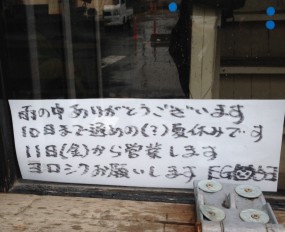 雨の中ありがとうございます
10日まで遅めの(?)夏休みです
11日(金)から営業します
ヨロシクお願いします